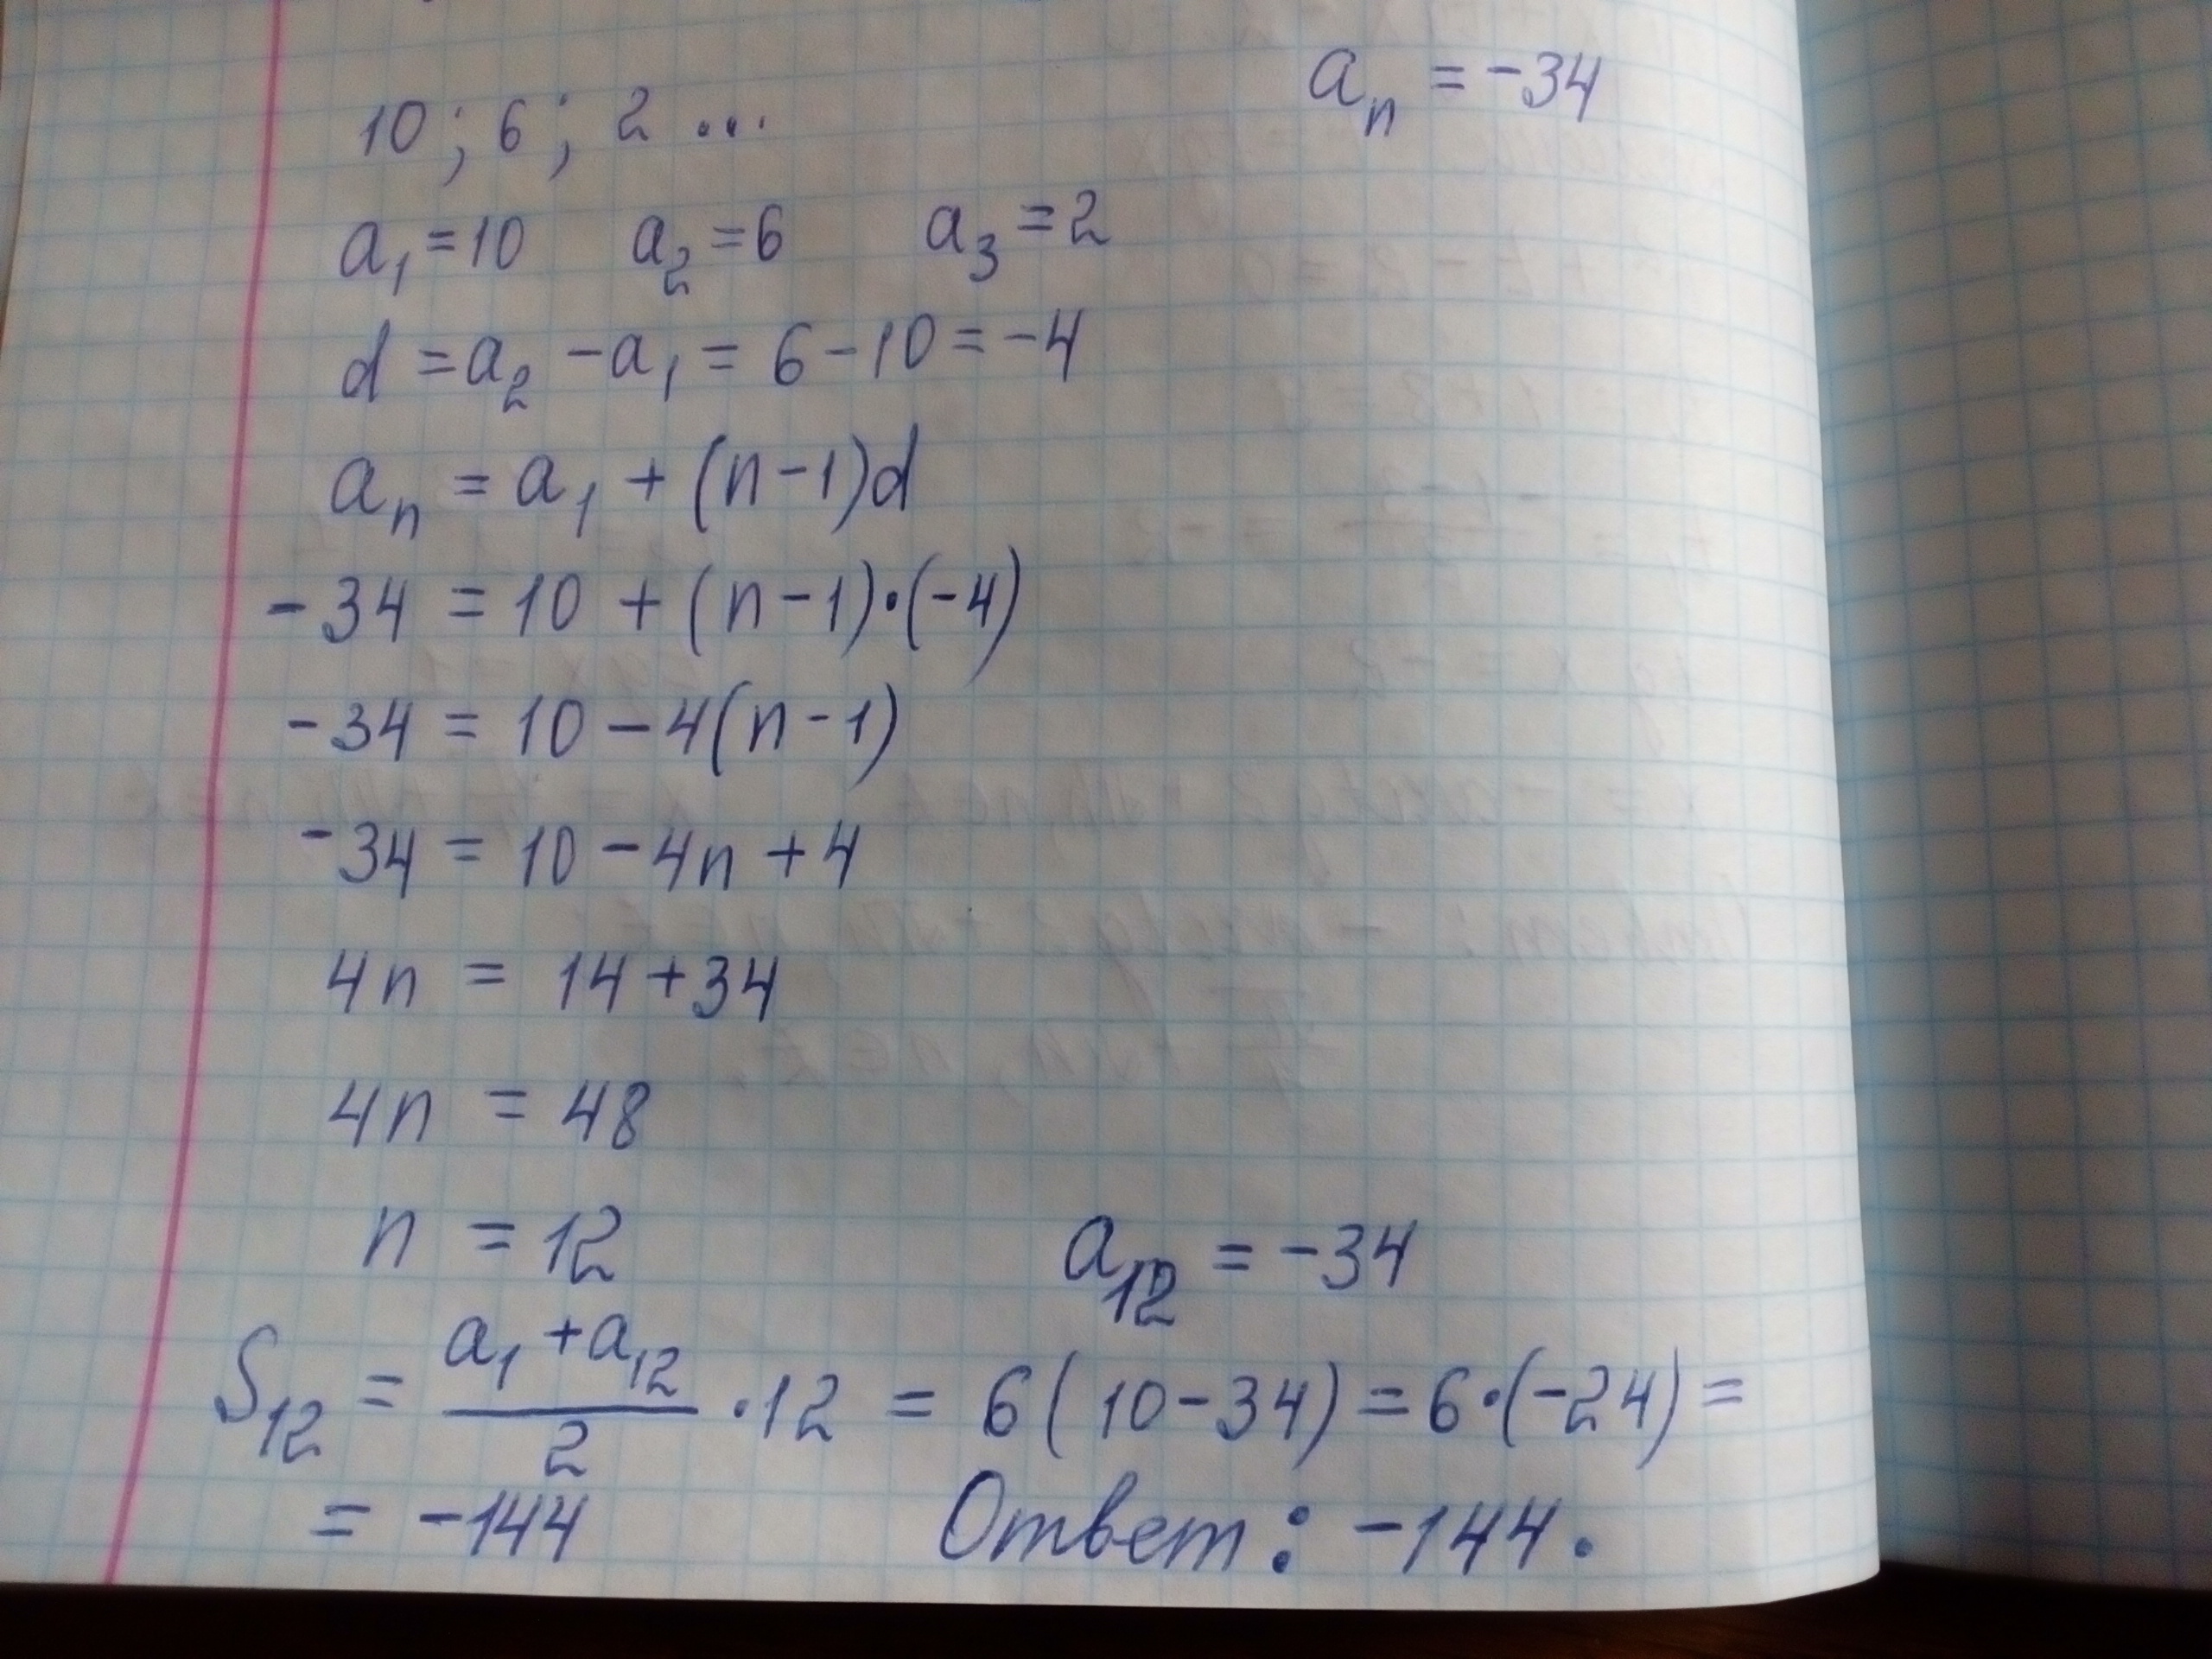 10; 6; 2 ... aₙ = -34
a₁ = 10 a₂ = 6 a₃ = 2
d = a₂ - a₁ = 6 - 10 = -4
aₙ = a₁ + (n-1)d
-34 = 10 + (n-1)·(-4)
-34 = 10 - 4(n-1)
-34 = 10 - 4n + 4
4n = 14 + 34
4n = 48
n = 12 a₁₂ = -34
S₁₂ = (a₁ + a₁₂)/2 · 12 = 6(10-34) = 6·(-24) =
= -144 Ответ: -144.